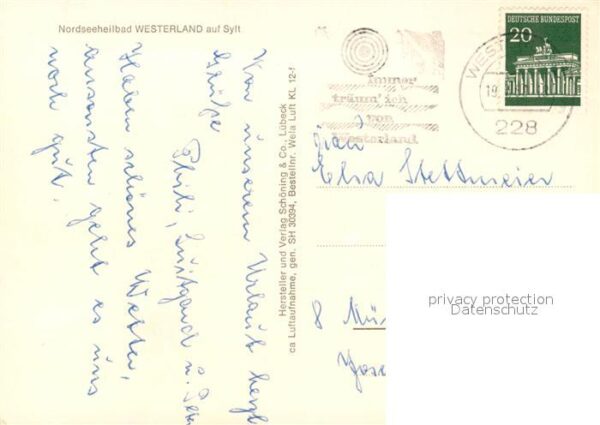 Nordseeheilbad WESTERLAND auf Sylt
Von unserem Urlaub herzl
Grüße
Philli, Luitgard u. Peter
Haben schönes Wetter,
ansonsten geht es uns
noch gut.
Hersteller und Verlag Schöning & Co., Lübeck
ca Luftaufnahme, gen. SH 30394, Bestellnr. Wela Luft KL 12-f
immer
träum' ich
von
Westerland
DEUTSCHE BUNDESPOST
20
WEST
19.
228
Frau
Elsa Stettmeier
8 Mün
privacy protection
Datenschutz